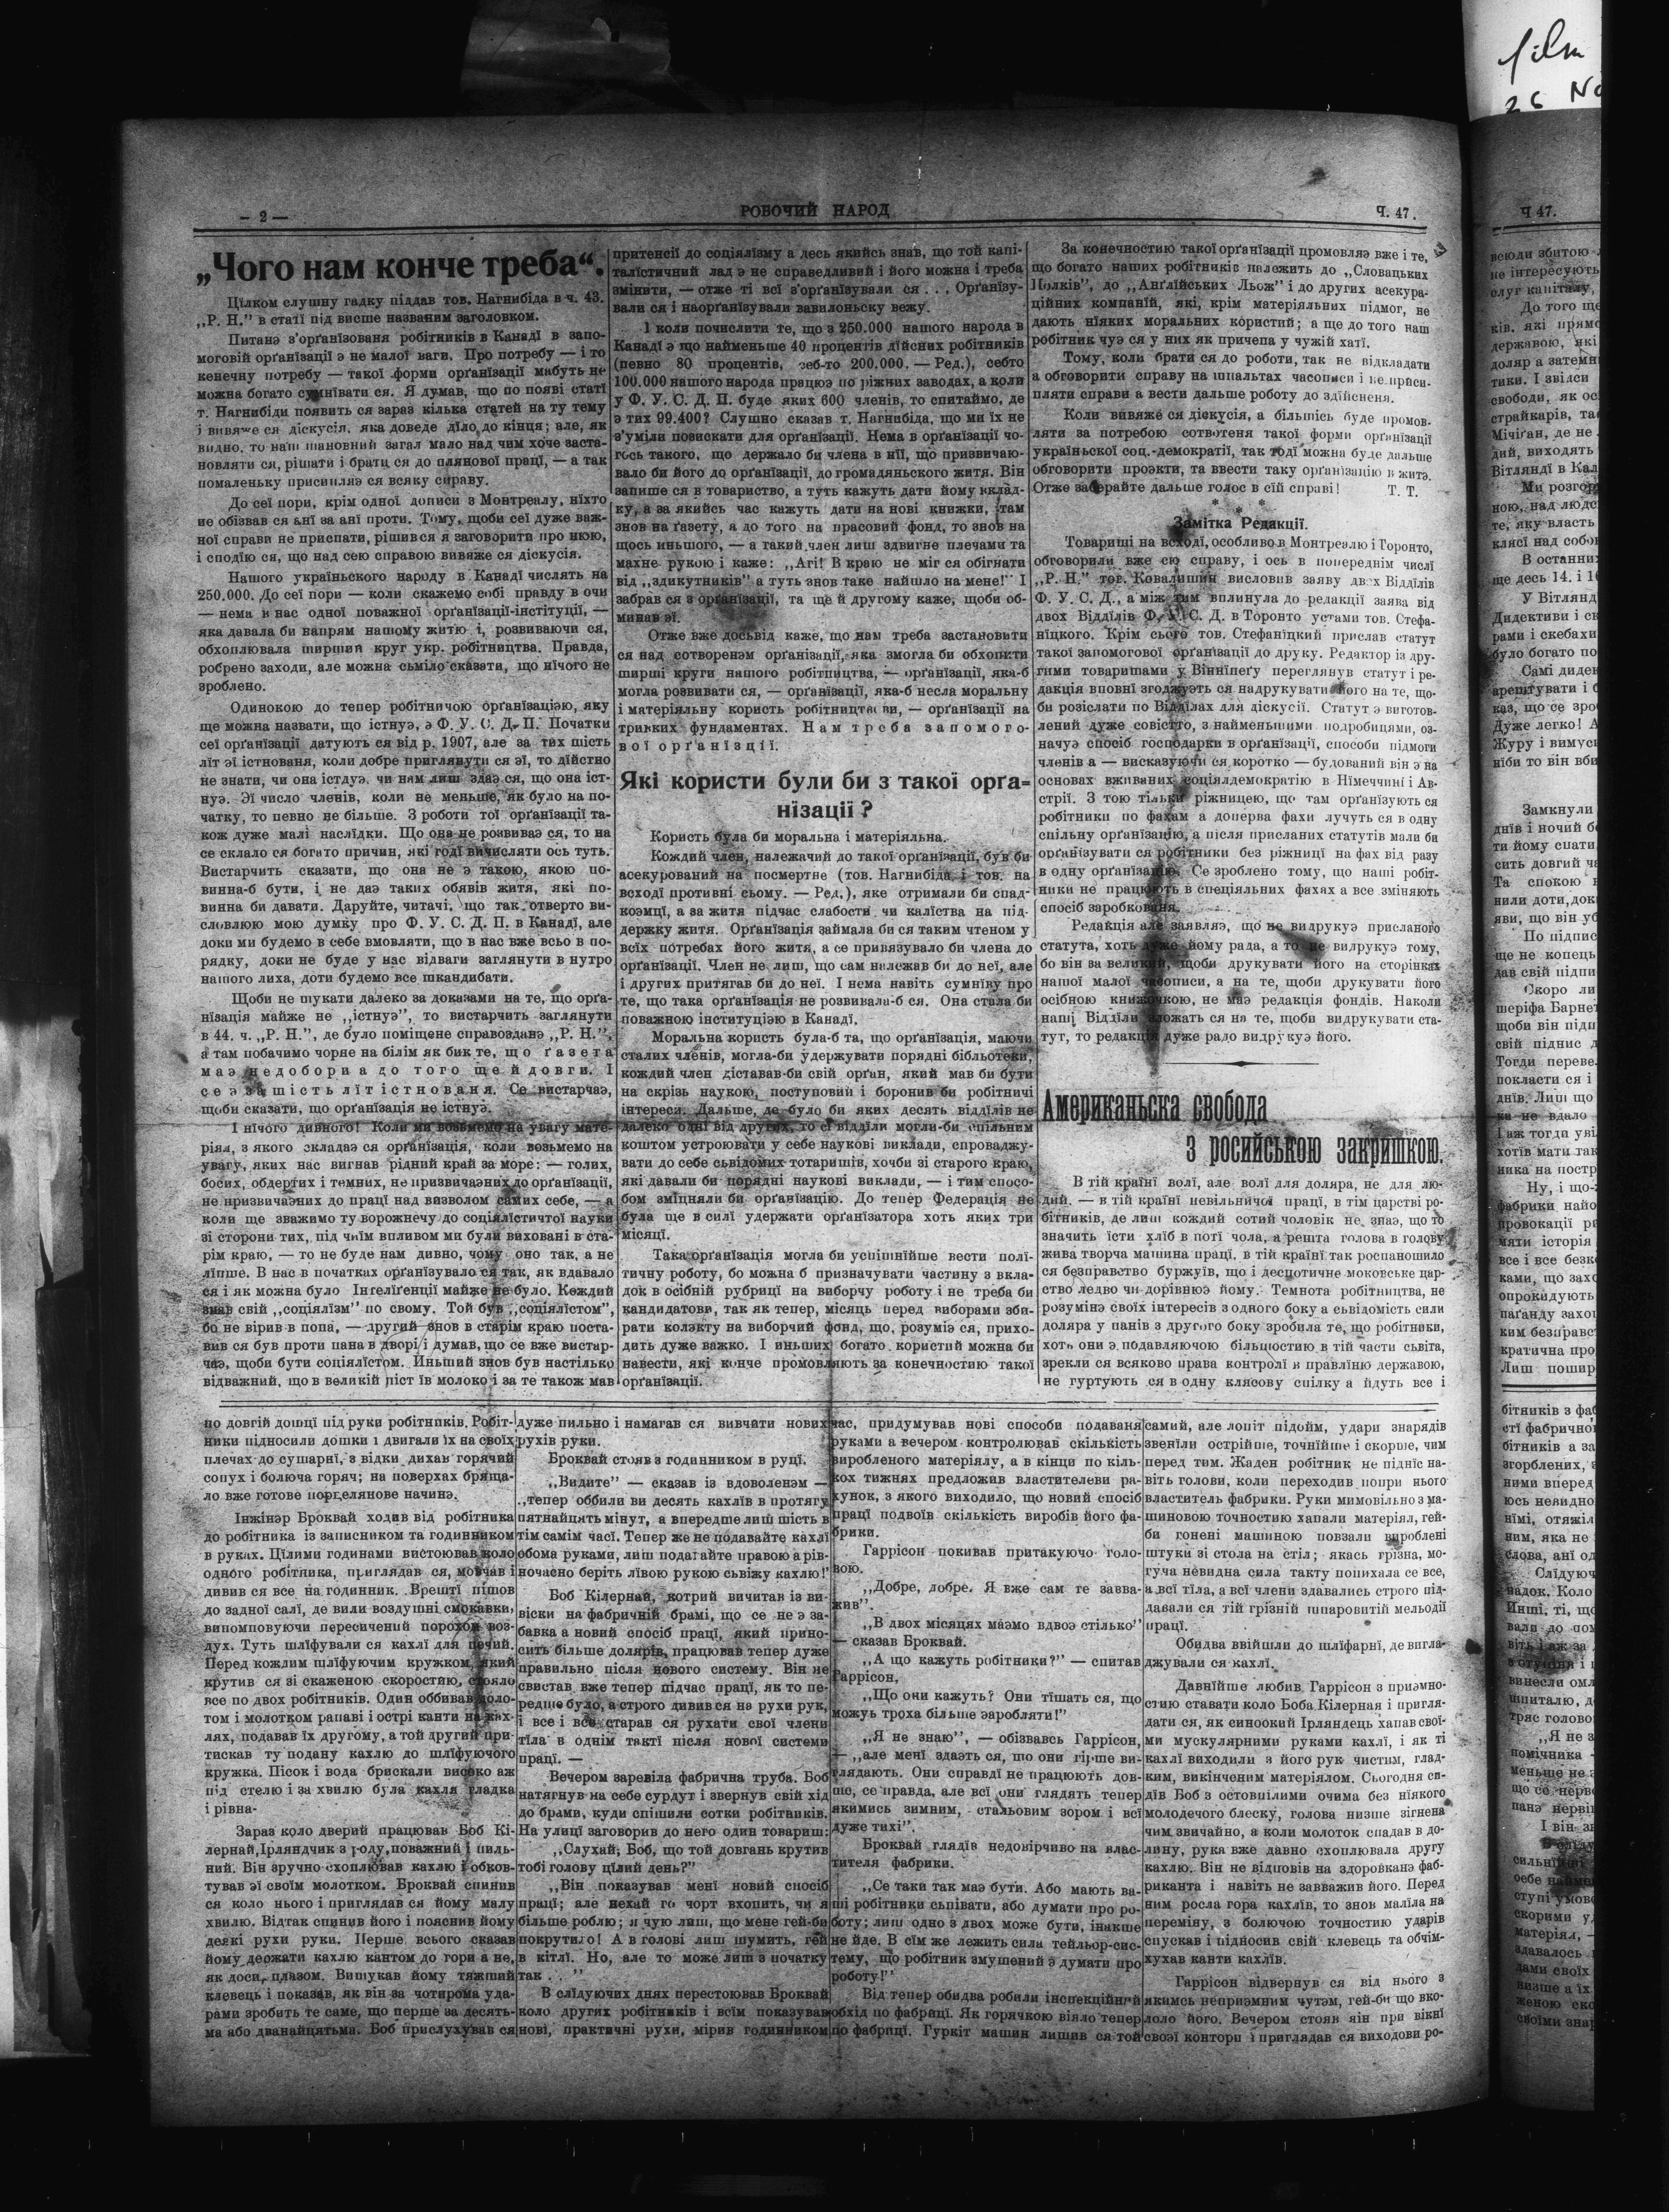 — 2 —
РОБОЧИЙ НАРОД
Ч. 47.
„Чого нам конче треба“.
Цїлком слушну гадку піддав тов. Нагнибіда в ч. 43.
„Р. Н.” в статї під висше названим заголовком.
Питанэ з'орґанїзованя робітників в Канадї в запо-
моговій орґанїзації э не малої ваги. Про потребу — і то
конечну потребу — такої форми орґанїзації мабуть не
можна богато сумнївати ся. Я думав, що по появі статї
т. Нагнибіди появить ся зараз кілька статей на ту тему
і вивяже ся діскусія, яка доведе дїло до кінця; але, як
видно, то наш шановний загал мало над чим хоче заста-
новляти ся, рішати і брати ся до плянової працї, — а так
помаленьку присипляэ ся всяку справу.
До сеї пори, крім одної дописи з Монтреалу, нїхто
не обізвав ся анї за анї проти. Тому, щоби сеї дуже важ-
ної справи не приспати, рішив ся я заговорити про нюю,
і сподїю ся, що над сею справою вивяже ся діскусія.
Нашого україньского народу в Канадї числять на
250.000. До сеї пори — коли скажемо собі правду в очи
— нема в нас одної поважної орґанїзації-інстітуції, —
яка давала би напрям нашому житю і, розвиваючи ся,
обхоплювала ширший круг укр. робітництва. Правда,
роблено заходи, але можна сьміло сказати, що нїчого не
зроблено.
Одинокою до тепер робітничою орґанїзаціэю, яку
ще можна назвати, що істнуэ, э Ф. У. С. Д. П. Початки
сеї орґанїзації датують ся від р. 1907, але за тих шість
лїт эї істнованя, коли добре приглянути ся эї, то дїйстно
не знати, чи она істдуэ, чи нам лиш здаэ ся, що она іст-
нуэ. Эї число членів, коли не меньше, як було на по-
чатку, то певно не більше. З роботи тої орґанїзації та-
кож дуже малі наслїдки. Що она не розвиваэ ся, то на
се склало ся богато причин, які годї вичисляти ось туть.
Вистарчить сказати, що она не э такою, якою по-
винна-б бути, і не даэ таких обявів житя, які по-
винна би давати. Даруйте, читачі, що так отверто ви-
словлюю мою думку про Ф. У. С. Д. П. в Канадї, але
доки ми будемо в себе вмовляти, що в нас вже всьо в по-
рядку, доки не буде у нас відваги заглянути в нутро
нашого лиха, доти будемо все шкандибати.
Щоби не шукати далеко за доказами на те, що орґа-
нїзація майже не „істнуэ”, то вистарчить заглянути
в 44. ч. „Р. Н.”, де було поміщене справозданэ „Р. Н.”,
а там побачимо чорне на білім як бик те, що ґазета
маэ недобори а до того ще й довги. І
се э за шість лїт істнованя. Се вистарчаэ,
щоби сказати, що орґанїзація не істнуэ.
І нїчого дивного! Коли ми возьмемо на увагу мате-
ріял, з якого складаэ ся орґанїзація, коли возьмемо на
увагу, яких нас вигнав рідний край за море: — голих,
босих, обдертих і темних, не призвичаэних до орґанїзації,
не призвичаэних до працї над визволом самих себе, — а
коли ще зважимо ту ворожнечу до соціялїстичтої науки
зі сторони тих, під чиїм впливом ми були виховані в ста-
рім краю, — то не буде нам дивно, чому оно так, а не
лїпше. В нас в початках орґанїзувало ся так, як вдавало
ся і як можна було Інтелїґенції майже не було. Кождий
знав свій „соціялїзм” по свому. Той був „соціялїстом”,
бо не вірив в попа, — другий знов в старім краю поста-
вив ся був проти пана в дворі і думав, що се вже вистар-
чаэ, щоби бути соціялїстом. Иньший знов був настілько
відважний, що в великій піст їв молоко і за те також мав
притенсії до соціялїзму а десь якийсь знав, що той капі-
талїстичний лад э не справедливий і його можна і треба
змінити, — отже ті всї з'орґанїзували ся . . . Орґанїзу-
вали ся і наорґанїзували вавилоньску вежу.
І коли почислити те, що з 250.000 нашого народа в
Канадї э що найменьше 40 процентів дїйсних робітників
(певно 80 процентів, зеб-то 200.000. — Ред.), себто
100.000 нашого народа працюэ по ріжних заводах, а коли
у Ф. У. С. Д. П. буде яких 600 членів, то спитаймо, де
э тих 99.400? Слушно сказав т. Нагнибіда, що ми їх не
з'уміли позискати для орґанїзації. Нема в орґанїзації чо-
гось такого, що держало би члена в нїй, що призвичаю-
вало би його до орґанїзації, до громадяньского житя. Він
запише ся в товариство, а туть кажуть дати йому вклад-
ку, а за якийсь час кажуть дати на нові книжки, там
знов на ґазету, а до того на прасовий фонд, то знов на
щось иньшого, — а такий член лиш здвигне плечами та
махне рукою і каже: „Агі! В краю не міг ся обігнати
від „здикутників” а туть знов таке найшло на мене!” І
забрав ся з орґанїзації, та ще й другому каже, щоби об-
минав эї.
Отже вже досьвід каже, що нам треба застановити
ся над сотворенэм орґанїзації, яка змогла би обхопити
ширші круги нашого робітництва, — орґанїзації, яка-б
могла розвивати ся, — орґанїзації, яка-б несла моральну
і матеріяльну користь робітництв ви, — орґанїзації на
тривких фундаментах. Нам треба запомого-
вої орґанїзції.
Які користи були би з такої орґа-
нїзації?
Користь була би моральна і матеріяльна.
Кождий член, належачий до такої орґанїзації, був би
асекурований на посмертне (тов. Нагнибіда і тов. на
всходї противні сьому. — Ред.), яке отримали би спад-
коэмцї, а за житя підчас слабости чи калїства на під-
держку житя. Орґанїзація займала би ся таким чтеном у
всїх потребах його житя, а се привязувало би члена до
орґанїзації. Член не лиш, що сам належав би до неї, але
і других притягав би до неї. І нема навіть сумнїву про
те, що така орґанїзація не розвивала-б ся. Она стала би
поважною інституціэю в Канадї.
Моральна користь була-б та, що орґанїзація, маючи
сталих членів, могла-би удержувати порядні бібльотеки,
кождий член діставав-би свій орґан, який мав би бути
на скрізь наукою, поступовий і боронив би робітничі
інтереси. Дальше, де було би яких десять віддїлів не
далеко одні від других, то сї віддїли могли-би спільним
коштом устроювати у себе наукові виклади, спроваджу-
вати до себе сьвідомих тотаришів, хочби зі старого краю,
які давали би порядні наукові виклади, — і тим спосо-
бом зміцняли би орґанїзацію. До тепер Федерація не
була ще в силї удержати орґанїзатора хоть яких три
місяцї.
Така орґанїзація могла би успішнїйше вести полї-
тичну роботу, бо можна б призначувати частину з вкла-
док в осібній рубрицї на виборчу роботу і не треба би
кандидатови, так як тепер, місяць перед виборами зби-
рати колэкту на виборчий фонд, що, розуміэ ся, прихо-
дить дуже важко. І иньших богато користий можна би
навести, які конче промовляють за конечностию такої
орґанїзації.
За конечностию такої орґанїзації промовляэ вже і те,
що богато наших робітників належить до „Словацьких
Полків”, до „Анґлїйських Льож” і до других асекура-
ційних компанїй, які, крім матеріяльних підмог, не
дають нїяких моральних користий; а ще до того наш
робітник чуэ ся у них як причепа у чужій хатї.
Тому, коли брати ся до роботи, так не відкладати
а обговорити справу на шпальтах часописи і не приси-
пляти справи а вести дальше роботу до здїйсненя.
Коли вивяже ся діскусія, а більшісь буде промов-
ляти за потребою сотвотеня такої форми орґанїзації
україньскої соц.-демократії, так тодї можна буде дальше
обговорити проэкти, та ввести таку орґанїзацію в житэ.
Отже заберайте дальше голос в сїй справі! Т. Т.
* * *
Замітка Редакції.
Товариші на всходї, особливо в Монтреалю і Торонто,
обговорили вже сю справу, і ось в попереднім числї
„Р. Н.” тов. Ковалишин висловив заяву двох Віддїлів
Ф. У. С. Д., а між тим вплинула до редакції заява від
двох Віддїлів Ф. У. С. Д. в Торонто устами тов. Стефа-
нїцкого. Крім сього тов. Стефанїцкий прислав статут
такої запомогової орґанїзації до друку. Редактор із дру-
гими товаришами у Віннїпеґу переглянув статут і ре-
дакція вповнї згоджуэть ся надрукувати його на те, що-
би розіслати по Віддїлах для діскусії. Статут э виготов-
лений дуже совісто, з найменьшими подробицями, оз-
начуэ спосіб господарки в орґанїзації, способи підмоги
членів а — висказуючи ся коротко — будований він э на
основах вживаних соціялдемократію в Нїмеччинї і Ав-
стрії. З тою тільки ріжницею, що там орґанїзують ся
робітники по фахам а доперва фахи лучуть ся в одну
спільну орґанїзацію, а після присланих статутів мали би
орґанїзувати ся робітники без ріжницї на фах від разу
в одну орґанїзацію. Се зроблено тому, що наші робіт-
ники не працюють в специяльних фахах а все зміняють
спосіб заробкованя.
Редакція але заявляэ, що не видрукуэ присланого
статута, хоть дуже йому рада, а то не вилрукуэ тому,
бо він за великий, щоби друкувати його на сторінках
нашої малої часописи, а на те, щоби друкувати його
осібною книжочкою, не маэ редакція фондів. Наколи
наші Віддїли зложать ся на те, щоби видрукувати ста-
тут, то редакція дуже радо видрукуэ його.
Американьска свобода
з росийською закришкою.
В тій країнї волї, але волї для доляра, не для лю-
дий. — в тій країнї невільничої працї, в тім царстві ро-
бітників, де лиш кождий сотий чоловік не знаэ, що то
значить їсти хлїб в потї чола, а решта голова в голову
жива творча машина працї, в тій країнї так роспаношило
ся безправство буржуїв, що і деспотичне моковське цар-
ство ледво чи дорівнюэ йому. Темнота робітництва, не
розумінэ своїх інтересів з одного боку а сьвідомість сили
доляра у панів з другого боку зробила те, що робітники,
хоть они э подавляючою більшостию в тій части сьвіта,
зрекли ся всяково права контролї в правлїню державою,
не гуртують ся в одну клясову спілку а йдуть все і
по довгій дошцї під руки робітників. Робіт-
ники підносили дошки і двигали їх на своїх
плечах до сушарнї, з відки дихав горячий
сопух і болюча горяч; на поверхах бряща-
ло вже готове порцелянове начинэ.
Інжінэр Броквай ходив від робітника
до робітника із записником та годинником
в руках. Цїлими годинами вистоював коло
одного робітника, приглядав ся, мовчав і
дивив ся все на годинник. Врештї пішов
до задної салї, де вили воздушні смокавки,
випомповуючи пересичений порохом воз-
дух. Туть шлїфували ся кахлї для печий.
Перед кожлим шлїфуючим кружком, який
крутив ся зі скаженою скоростию, стояло
все по двох робітників. Один оббивав доло-
том і молотком рапаві і острі канти на ках-
лях, подавав їх другому, а той другий при-
тискав ту подану кахлю до шлїфуючого
кружка. Пісок і вода брискали високо аж
під стелю і за хвилю була кахля гладка
і рівна-
Зараз коло дверий працював Боб Кі-
лернай, Ірляндчик з роду, поважний і пиль-
ний. Він зручно схоплював кахлю і обков-
тував эї своїм молотком. Броквай спинив
ся коло нього і приглядав ся йому малу
хвилю. Відтак спинив його і пояснив йому
деякі рухи руки. Перше всього сказав
йому держати кахлю кантом до гори а не,
як доси, плазом. Вишукав йому тяжший
клевець і показав, як він за чотирома уда-
рами зробить те саме, що перше за десять-
ма або дванайцятьма. Боб прислухував ся
дуже пильно і намагав ся вивчити нових
рухів руки.
Броквай стояв з годинником в руцї.
„Видите” — сказав із вдоволенэм —
„тепер оббили ви десять кахлїв в протягу
пятнайцять мінут, а впередше лиш шість в
тїм самім часї. Тепер же не подавайте кахлї
обома руками, лиш подагайте правою а рів-
ночасно беріть лївою рукою сьвіжу кахлю!”
Боб Кілернай, котрий вичитав із ви-
віски на фабричній брамі, що се не э за-
бавка а новий спосіб працї, який прино-
сить більше долярів, працював тепер дуже
правильно після нового систему. Він не
свистав вже тепер підчас працї, як то пе-
редше було, а строго дивив ся на рухи рук,
і все і все старав ся рухати свої члени
тїла в однім тактї після нової системи
працї. —
Вечером заревіла фабрична труба. Боб
натягнув на себе сурдут і звернув свій хід
до брами, куди спішили сотки робітників.
На улицї заговорив до него один товариш:
„Слухай, Боб, що той довгань крутив
тобі голову цїлий день?”
„Він показував менї новий спосіб
працї; але нехай го чорт вхопить, чи я
більше роблю; я чую лиш, що мене гей-би
покрутило! А в голові лиш шумить, гей
в кітлї. Но, але то може лиш з початку
так . . ”
В слїдуючих днях перестоював Броквай
коло других робітників і всїм показував
нові, практичні рухи, мірив годинником
час, придумував нові способи подаваня
руками а вечером контролював скількість
виробленого матеріялу, а в кінци по кіль-
кох тижнях предложив властителеви ра-
хунок, з якого виходило, що новий спосіб
працї подвоїв скількість виробів його фа-
брики.
Гаррісон покивав притакуючо голо-
вою.
„Добре, лобре. Я вже сам те завва-
жив”.
„В двох місяцях маэмо вдвоэ стілько”
— сказав Броквай.
„А що кажуть робітники?” — спитав
Гаррісон.
„Що они кажуть? Они тїшать ся, що
можуь троха більше заробляти!”
„Я не знаю”, — обізвавсь Гаррісон,
— „але менї здаэть ся, що они гірше ви-
глядають. Они справдї не працюють дов-
ше, се правда, але всї они глядять тепер
якимись зимним, стальовим зором і всї
дуже тихі”.
Броквай глядїв недовірчиво на влас-
тителя фабрики.
„Се таки так маэ бути. Або мають ва-
ші робітники сьпівати, або думати про ро-
боту; лиш одно з двох може бути, інакше
не йде. В сїм же лежить сила тейльор-сис-
тему, що робітник змушений э думати про
роботу!”
Від тепер обидва робили інспекційний
обхід по фабрицї. Як горячкою віяло тепер
по фабрицї. Гуркіт машин лишив ся той
самий, але лопіт підойм, удари знарядів
звенїли острійше, точнїйше і скорше, чим
перед тим. Жаден робітник не піднїс на-
віть голови, коли переходив попри нього
властитель фабрики. Руки мимовільно з ма-
шиновою точностию хапали матеріял, гей-
би гонені машиною повзали вироблені
штуки зі стола на стіл; якась грізна, мо-
гуча невидна сила такту попихала се все,
а всї тїла, а всї члени здавались строго під-
давали ся тій грізній шпаровитій мельодії
працї.
Обидва ввійшли до шлїфарнї, де вигла-
джували ся кахлї.
Давнїйше любив Гаррісон з приэмно-
стию ставати коло Боба Кілерная і пригля-
дати ся, як синоокий Ірляндець хапав свої-
ми мускулярними руками кахлї, і як ті
кахлї виходили з його рук чистим, глад-
ким, викінченим матеріялом. Сьогодня си-
дїв Боб з остовпілими очима без нїякого
молодечого блеску, голова низше зігнена
чим звичайно, а коли молоток спадав в до-
лину, рука вже давно схоплювала другу
кахлю. Він не відповів на здоровканэ фаб-
риканта і навіть не завважив його. Перед
ним росла гора кахлїв, то знов малїла на
переміну, з болючою точностию ударів
спускав і підносив свій клевець та обчім-
хував канти кахлїв.
Гаррісон відвернув ся від нього з
якимсь неприэмним чутэм, гей-би що вко-
лоло його. Вечером стояв він при вікнї
своэї контори і приглядав ся виходови ро-
film
26 No
Ч 47.
всюди збитою
не інтересують
слуг капіталу,
До того ще
ків, які прямо
державою, які
доляр а затемн
тики. І звідси
свободи, як ос
страйкарів, та
Мічіґан, де не
дий, виходять
Вітляндї в Кал
Ми розгор
ною, над людс
те, яку власть
клясї над собо
В останних
ще десь 14. і 1
У Вітлянд
Дидективи і ск
рами і скебахи
було богато по
Самі диден
арештувати і
каз, що се зро
Дуже легко! А
Журу і вимус
нїби то він вби
Замкнули
днїв і ночий б
ти йому спати
сить довгий ч
Та спокою
нили доти, док
яви, що він уб
По підпис
ще не копець
дав свій підпи
Скоро ли
шеріфа Барне
щоби він підп
свій підпис д
Тогди переве
покласти ся і
днїв. Лиш що
ка не вдало
І аж тогди уві
хотїв мати так
ника на постр
Ну, і що-
фабрики найо
провокації рі
мяти історія
все і все безк
ками, що захо
опрокидують
паганду захо
ким безправс
кратична про
Лиш пошир
бітників з фаб
стї фабрично
бітників а за
згорблених,
ними вперед
юсь невидно
нїмі, отяжіл
ним, яка не
слова, анї од
Слїдуюч
падок. Коло
Инші, ті, що
вали до пом
віть і аж за
винесли омл
шпиталю, д
тряс голово
„Я не з
помічника
меньше не
що се нерво
панэ нерві
І він за